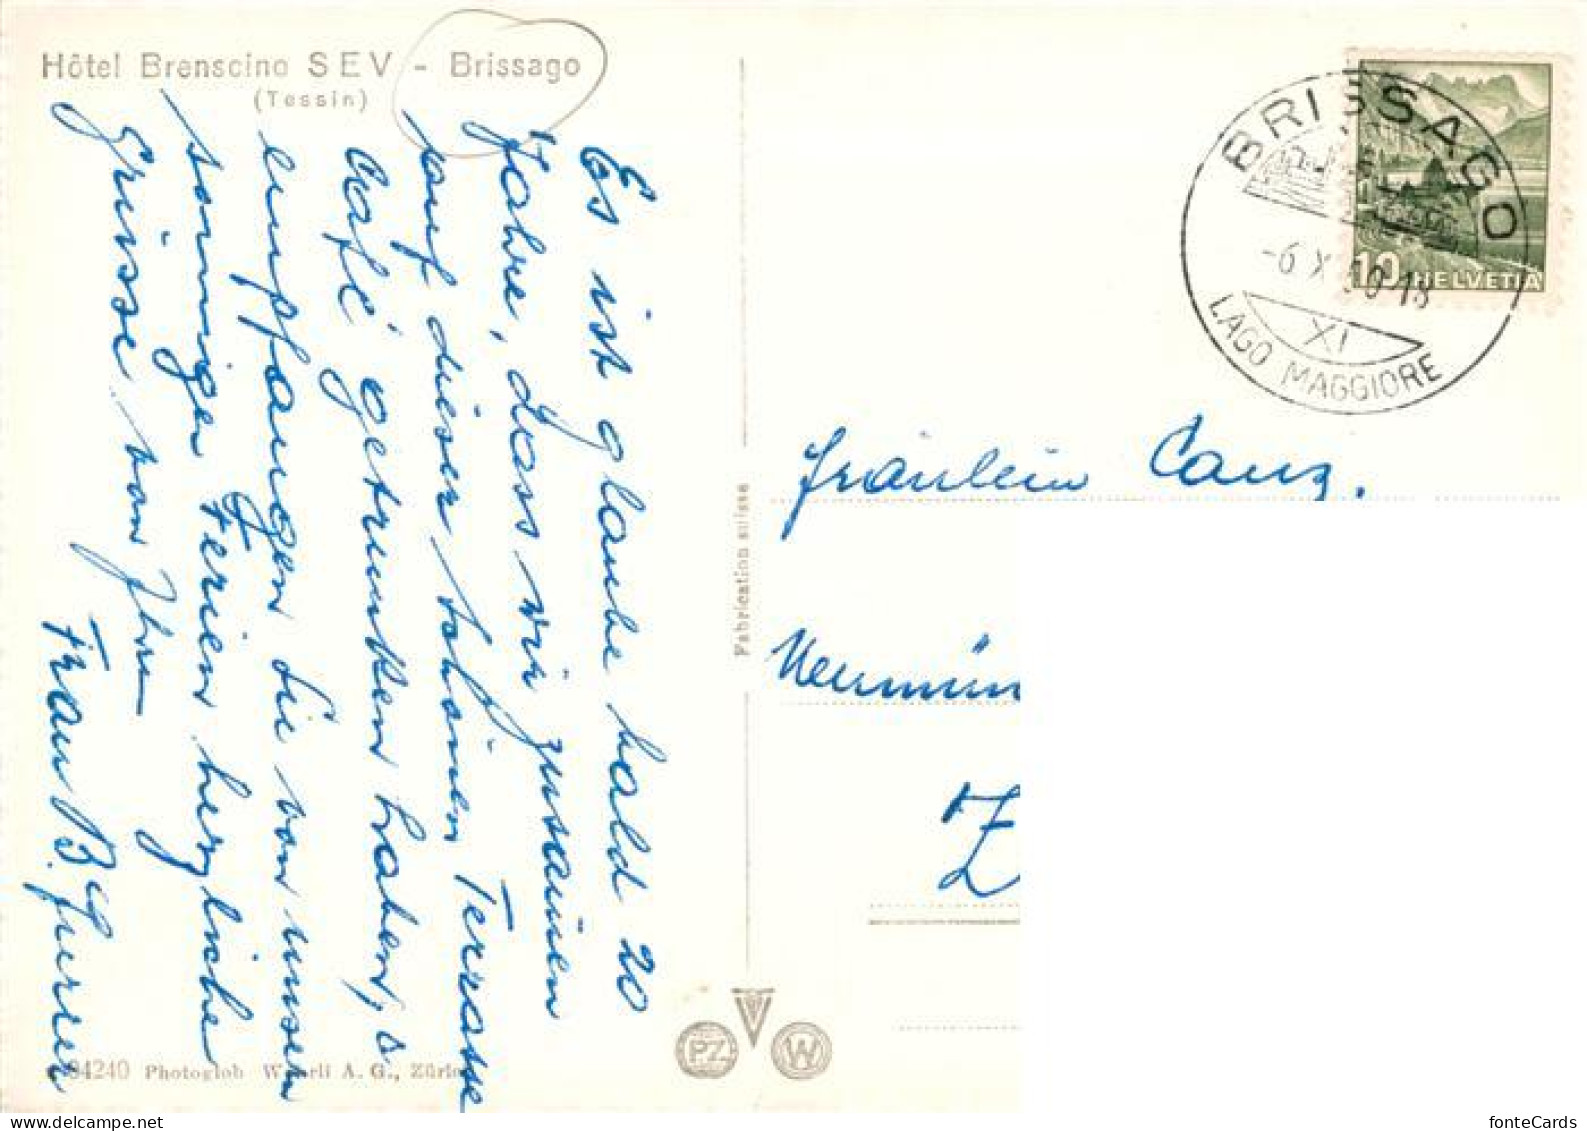 Hôtel Brenscino SEV - Brissago
(Tessin)
Es ist glaube bald 20
Jahre, dass wir zusammen
auf dieser schönen Terrasse
Café getrunken haben,
empfangen Sie von unsern
sonnigen Ferien herzliche
Grüsse von Ihrer
Frau B. Furrer
94240 Photoglob Wehrli A. G., Zürich
Fabrication suisse
PZ
W
BRISSAGO
-6 X
LAGO MAGGIORE
XI
10 HELVETIA
Fräulein Canz,
Neumün
Z
fonteCards